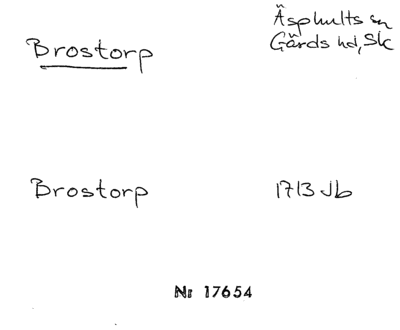 Brostorp
Äsphults sn
Gärds hd, Sk
Brostorp
1713 Jb
Nr 17654